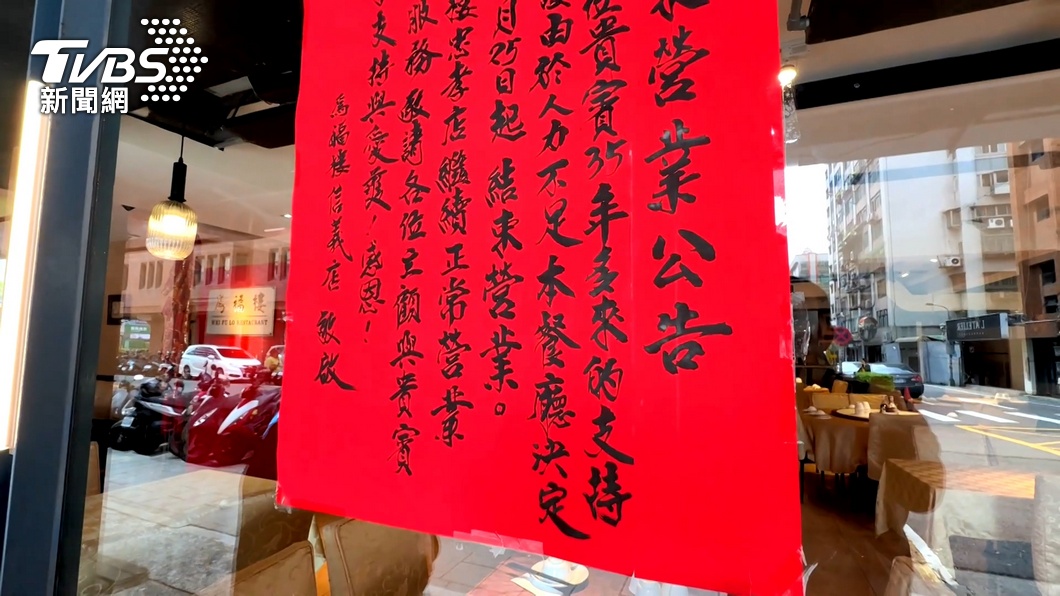 TVBS
新聞網
營業公告
貴賓35年多來的支持
由於人力不足 本餐廳決定
月25日起 結束營業。
樓忠孝店繼續正常營業
服務 敬請各位主顧與貴賓
支持與愛戴！感恩！
福樓 信義店 敬啟
福樓